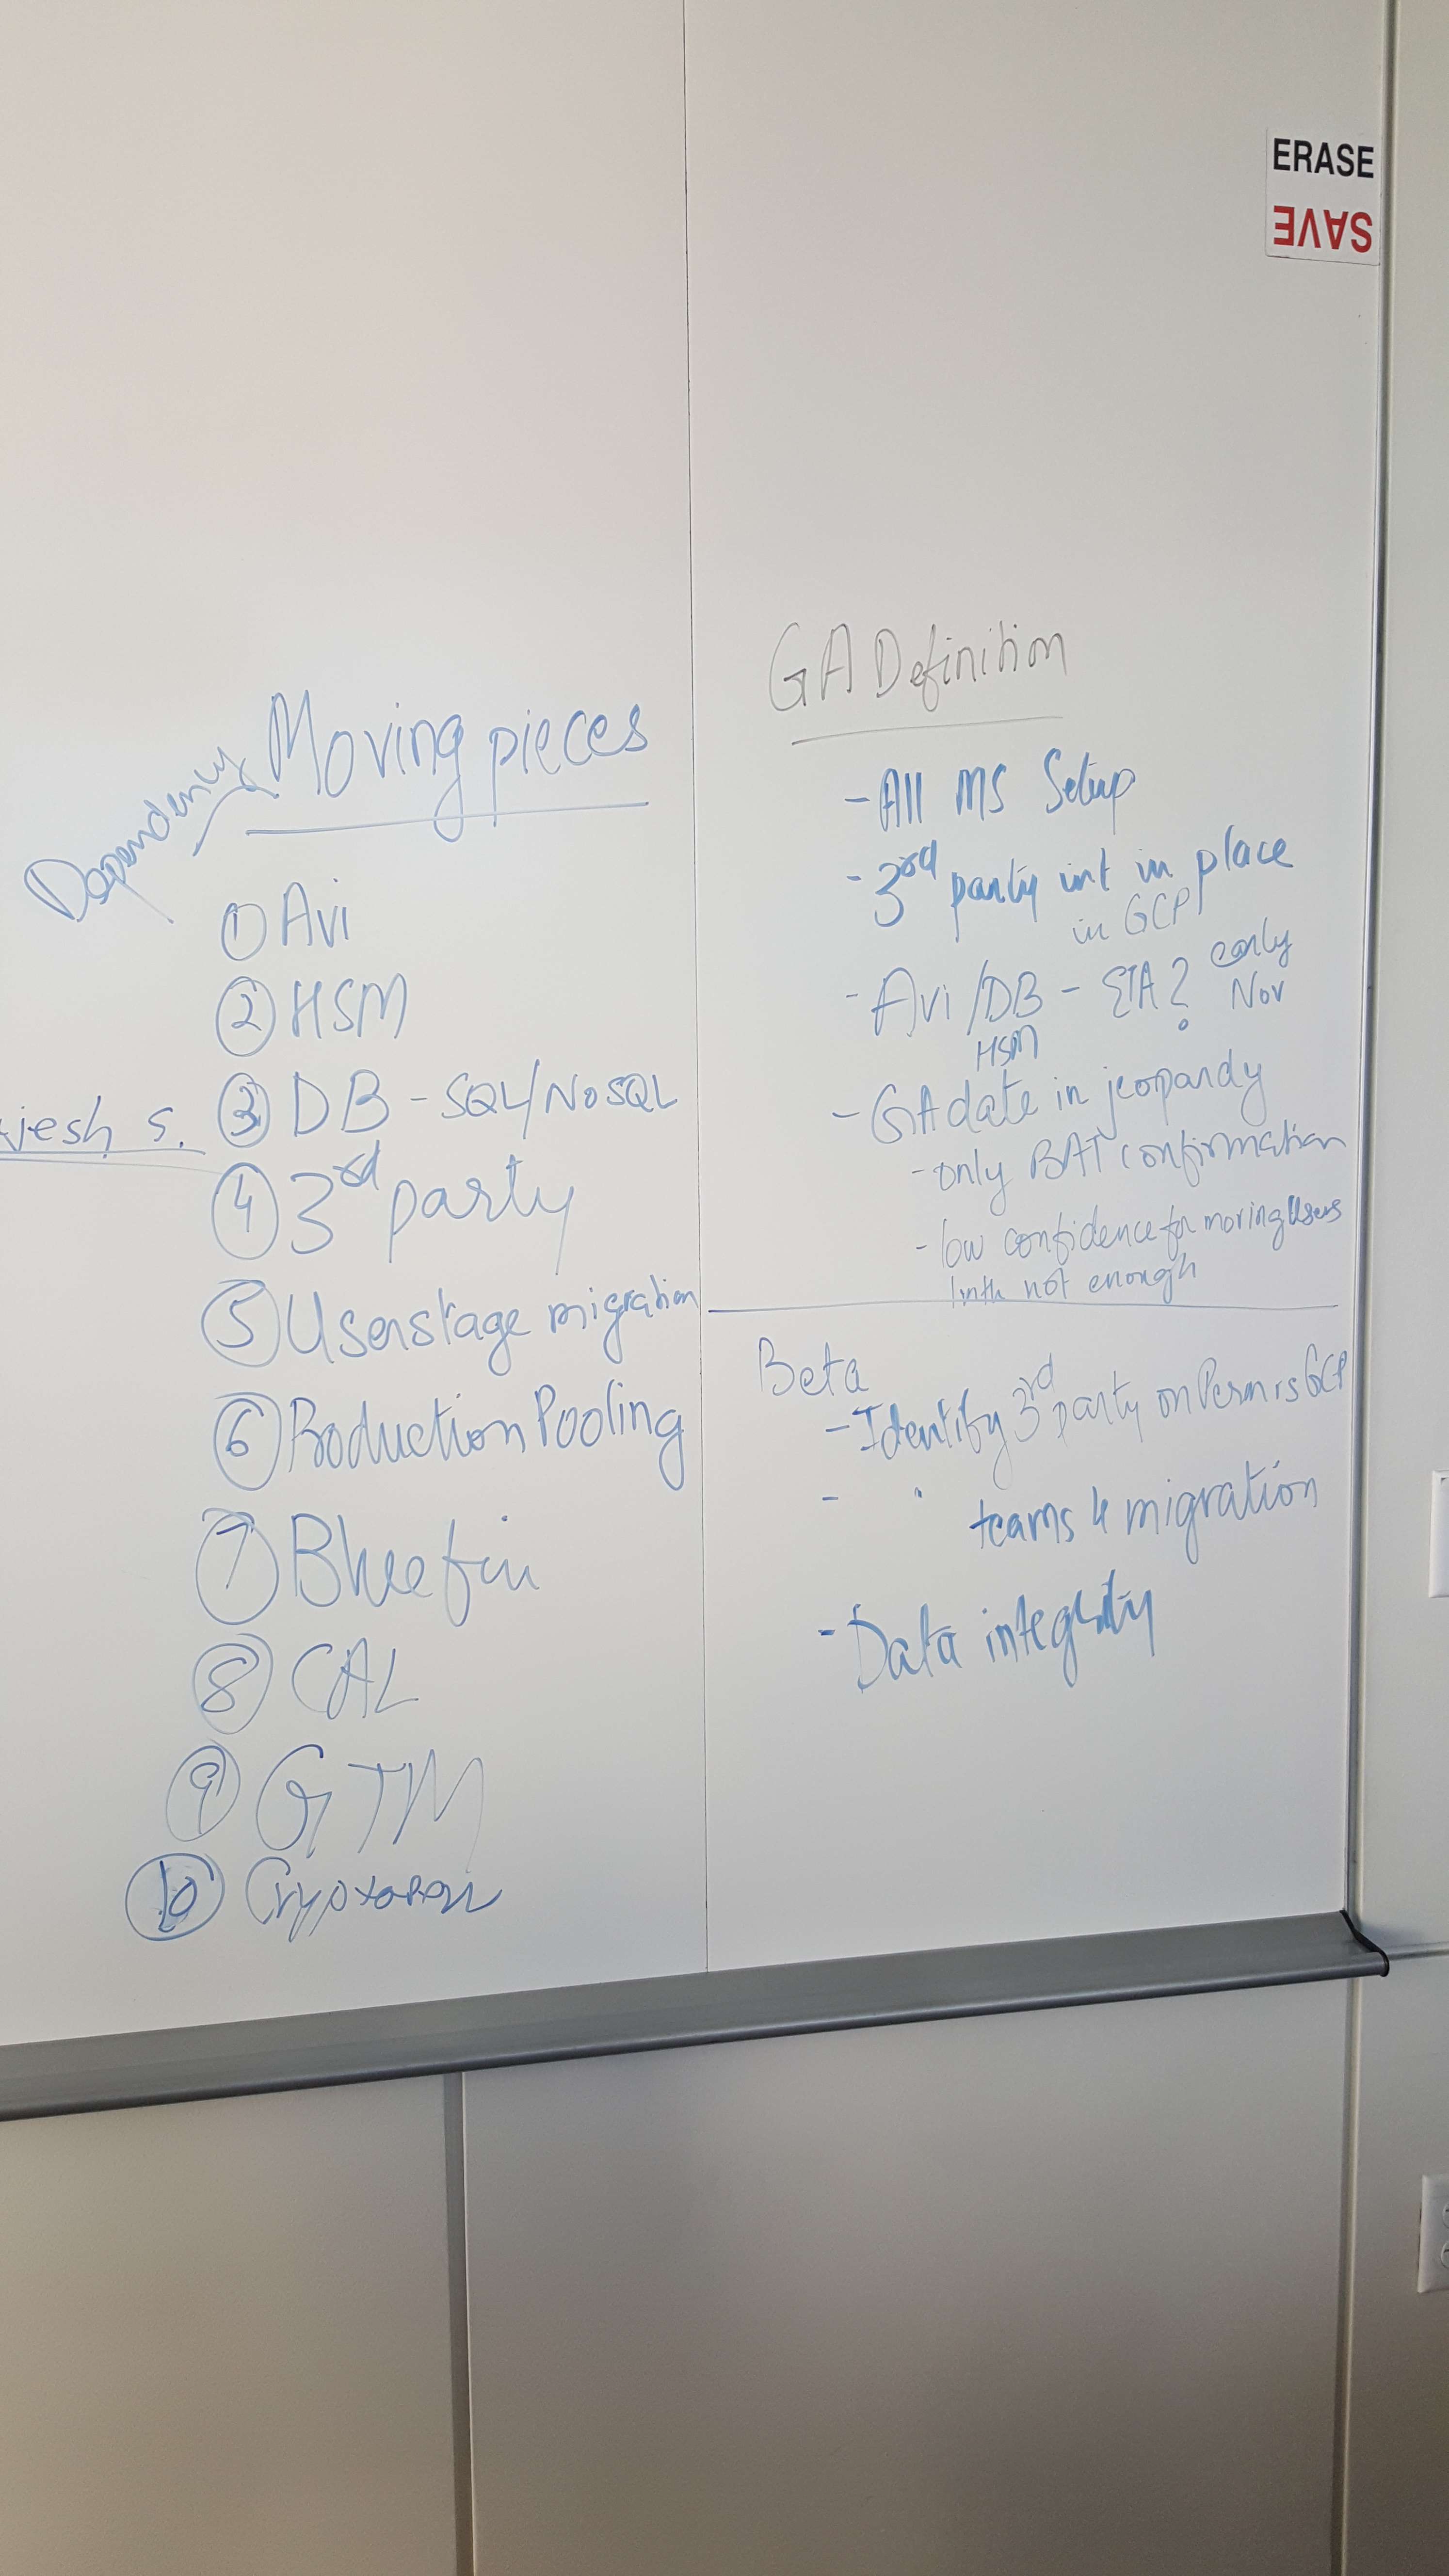 ERASE
SAVE
Dependency
Moving pieces
① Avi
② HSM
③ DB - SQL/NoSQL
jesh s.
④ 3rd party
⑤ Userstage migration
⑥ Production Pooling
⑦ Bluefin
⑧ CAL
⑨ GTM
⑩
GA Definition
- All MS Setup
- 3rd party int in place
in GCP
- Avi/DB - ETA? early
Nov
HSM
- GA date in jeopardy
- only BAT confirmation
- low confidence for moving users
1mth not enough
Beta
- Identify 3rd party on Perm is GCP
- "
teams 4 migration
- Data integrity